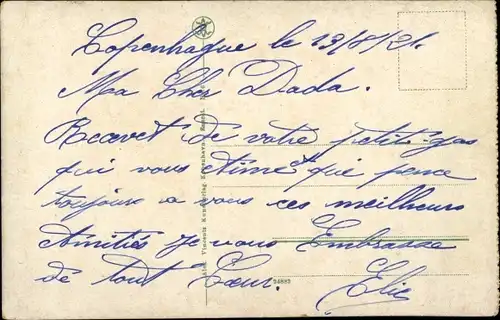 Copenhague le 13/8/21.
Ma Cher Dada.
Recevet de votre petit gas
qui vous aime et qui pence
toujours a vous ces meilheurs
Amitiés Je vous Embrasse
de tout Cœur. Elie
Vincents Kunstforlag
34885